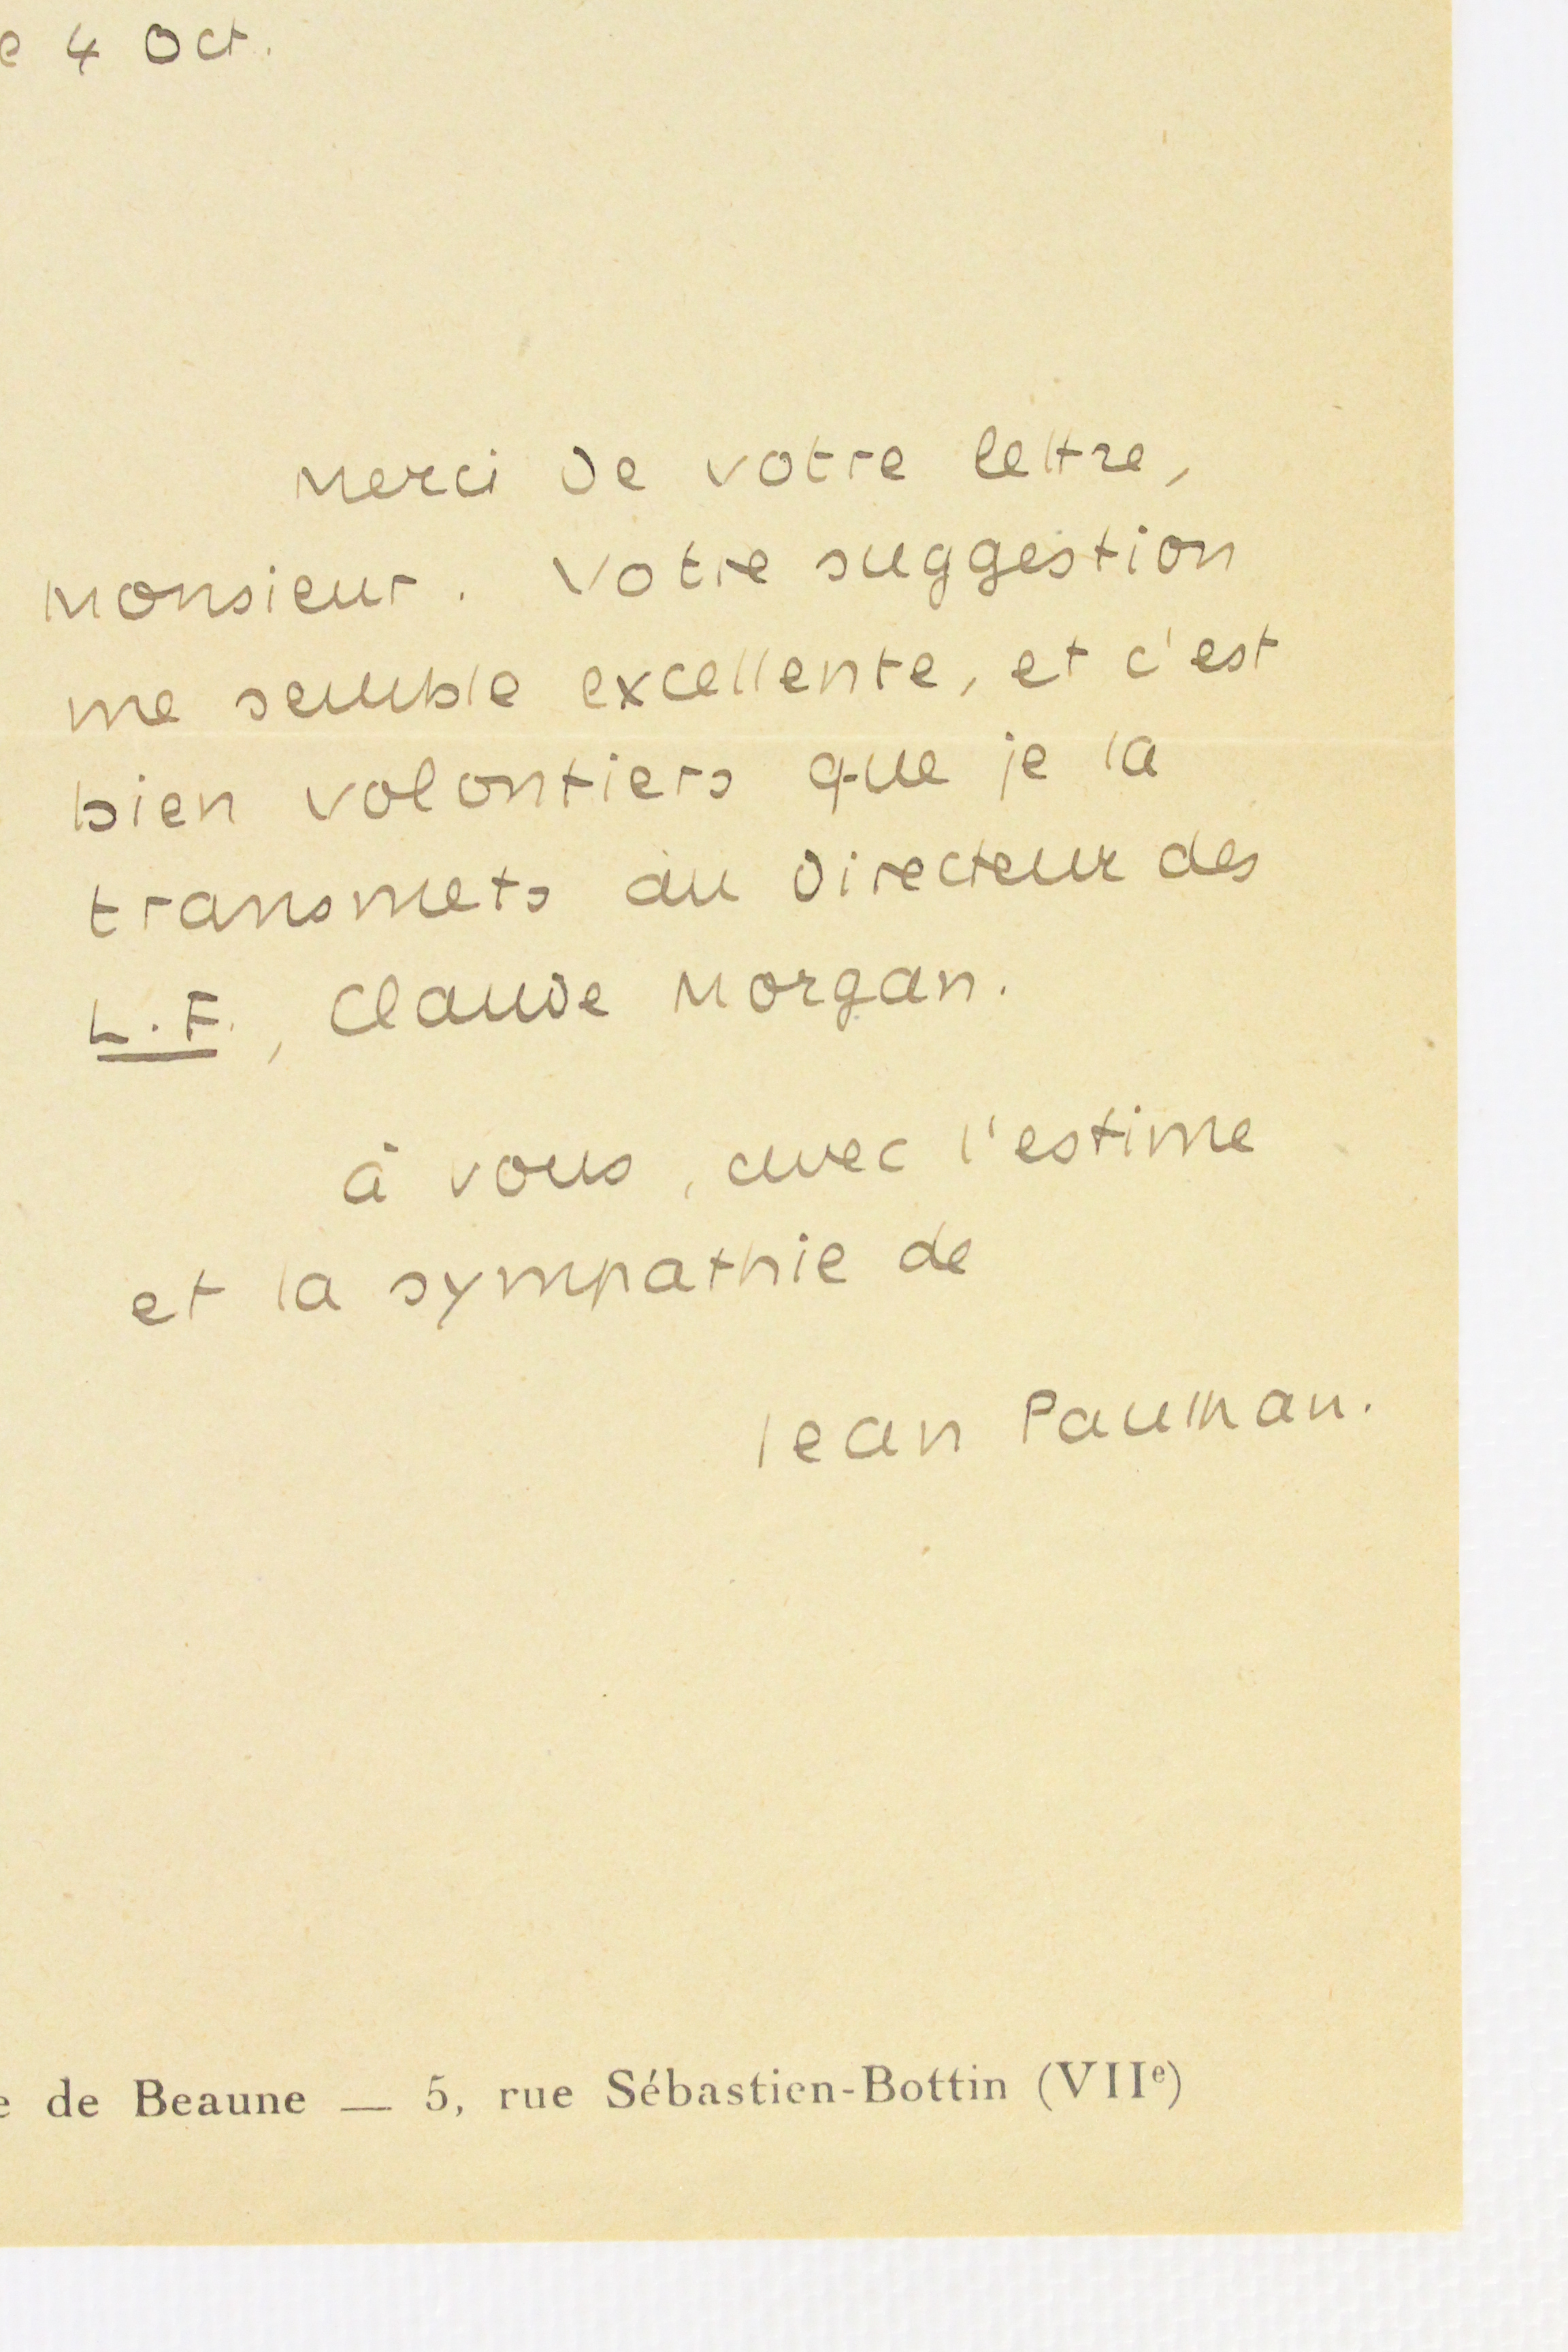 e 4 Oct.
Merci de votre lettre,
Monsieur. Votre suggestion
me semble excellente, et c'est
bien volontiers que je la
transmets au directeur des
L.F., Claude Morgan.
à vous, avec l'estime
et la sympathie de
Jean Paulhan.
e de Beaune — 5, rue Sébastien-Bottin (VIIe)